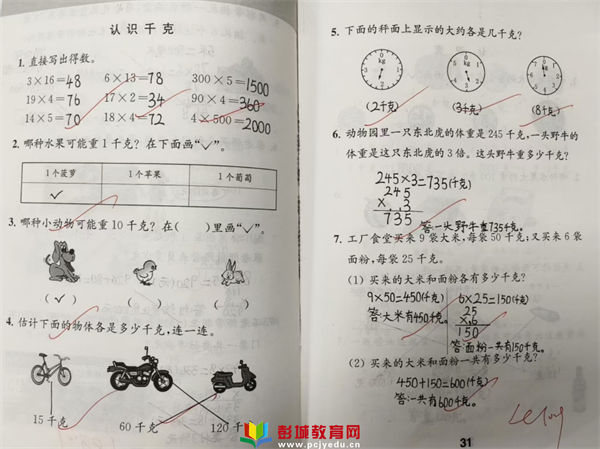 认识千克
1. 直接写出得数。
3×16=48 6×13=78 300×5=1500
19×4=76 17×2=34 90×4=360
14×5=70 18×4=72 4×500=2000
2. 哪种水果可能重1千克？在下面画“✓”。
1个菠萝 1个苹果 1个葡萄
✓
3. 哪种小动物可能重10千克？在( )里画“✓”。
(✓) ( ) ( )
4. 估计下面的物体各是多少千克，连一连。
15千克 60千克 120千
5. 下面的秤面上显示的大约各是几千克？
0 kg 0 kg 0 kg
(2千克) (3千克) (8千克)
6. 动物园里一只东北虎的体重是245千克，一头野牛的
体重是这只东北虎的3倍。这头野牛重多少千克？
245×3=735(千克)
245
×.3
735
答:一头野牛重735千克。
7. 工厂食堂买来9袋大米，每袋50千克；又买来6袋
面粉，每袋25千克。
(1) 买来的大米和面粉各有多少千克？
9×50=450(千克) 6×25=150(千克)
答:大米有450千克。
25
×.6
150
答:面粉一共有150千克。
(2) 买来的大米和面粉一共有多少千克？
450+150=600(千克)
答:一共有600千克。
31
彭城教育网
www.pcjyedu.cn